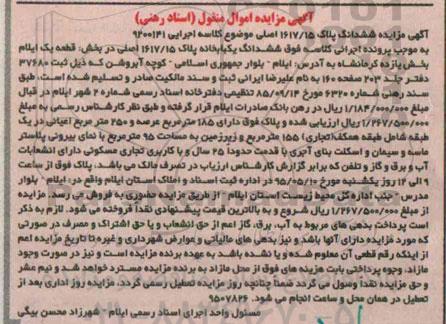 آگهی مزایده اموال منقول (اسناد رهنی)
آگهی مزایده ششدانگ پلاک ۱۶۱۷/۱۵ اصلی موضوع کلاسه اجرایی ۹۲۰۰۱۴۱
به موجب پرونده اجرائی کلاسه فوق ششدانگ یکبابخانه پلاک ۱۶۱۷/۱۵ اصلی در بخش: قطعه یک ایلام
بخش یازده کرمانشاه به آدرس: ایلام - بلوار جمهوری اسلامی - کوچه آبروشن که ذیل ثبت ۳۷۶۸۰
دفتر جلد ۲۰۳ صفحه ۱۶۰ به نام علیرضا ایرانی ثبت و سند مالکیت صادر و تسلیم شده است، طبق
سند رهنی شماره ۶۳۲۰ مورخ ۸۵/۰۹/۱۴ تنظیمی دفترخانه اسناد رسمی شماره ۲ شهر ایلام در قبال
مبلغ ۱/۱۸۴/۰۰۰/۰۰۰ ریال در رهن بانک صادرات ایلام قرار گرفته و طبق نظر کارشناس رسمی به مبلغ
۱/۲۶۷/۵۰۰/۰۰۰ ریال ارزیابی شده و پلاک فوق دارای ۱۸۵ مترمربع عرصه و ۲۵۰ متر مربع اعیانی در یک
طبقه شامل طبقه همکف(تجاری) ۱۵۵ مترمربع و زیرزمین به مساحت ۹۵ مترمربع با نمای بیرونی پلاستر
ماسه و سیمان و اسکلت بنای آجری با قدمت حدوداً ۲۵ سال و با کاربری تجاری مسکونی دارای انشعابات
آب و برق و گاز و تلفن که برابر گزارش کارشناس ارزیاب در تصرف مالک می باشد. پلاک فوق از ساعت
۹ الی ۱۲ روز یکشنبه مورخ ۹۵/۰۵/۱۰ در اداره ثبت اسناد و املاک استان ایلام واقع در: ایلام - بلوار
مدرس - جنب اداره کل محیط زیست استان ایلام - از طریق مزایده حضوری به فروش می رسد. مزایده
از مبلغ ۱/۲۶۷/۵۰۰/۰۰۰ ریال شروع و به بالاترین قیمت پیشنهادی نقداً فروخته می شود. لازم به ذکر
است پرداخت بدهی های مربوط به آب، برق، گاز اعم از حق انشعاب و یا حق اشتراک و مصرف در صورتی
که مورد مزایده دارای آنها باشد و نیز بدهی های مالیاتی و عوارض شهرداری و غیره تا تاریخ مزایده اعم
از اینکه رقم قطعی آن معلوم شده و یا نشده باشد به عهده برنده مزایده است و نیز در صورت وجود
مازاد، وجوه پرداختی بابت هزینه های فوق از محل مازاد به برنده مزایده مسترد خواهد شد و نیم عشر
و حق مزایده نقداً وصول می گردد ضمناً چنانچه روز مزایده تعطیل رسمی گردد، مزایده روز اداری بعد از
تعطیل در همان محل و ساعت انجام می شود. ۹۵۰۷۸۲۶
مسئول واحد اجرای اسناد رسمی ایلام - شهرزاد محسن بیگی